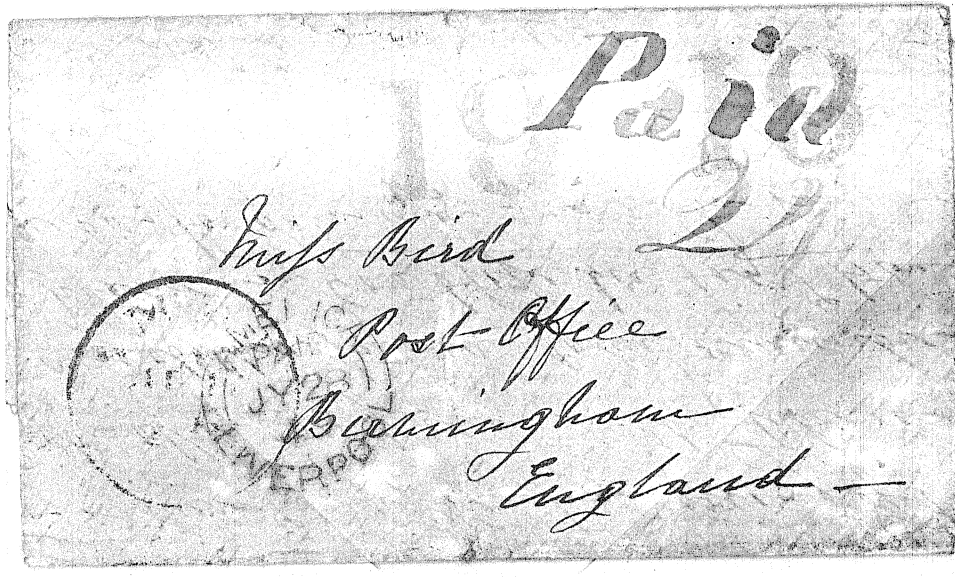 Paid
24
Miss Bird
Post Office
Birmingham
England —
PAID
JY 28
LIVERPOOL